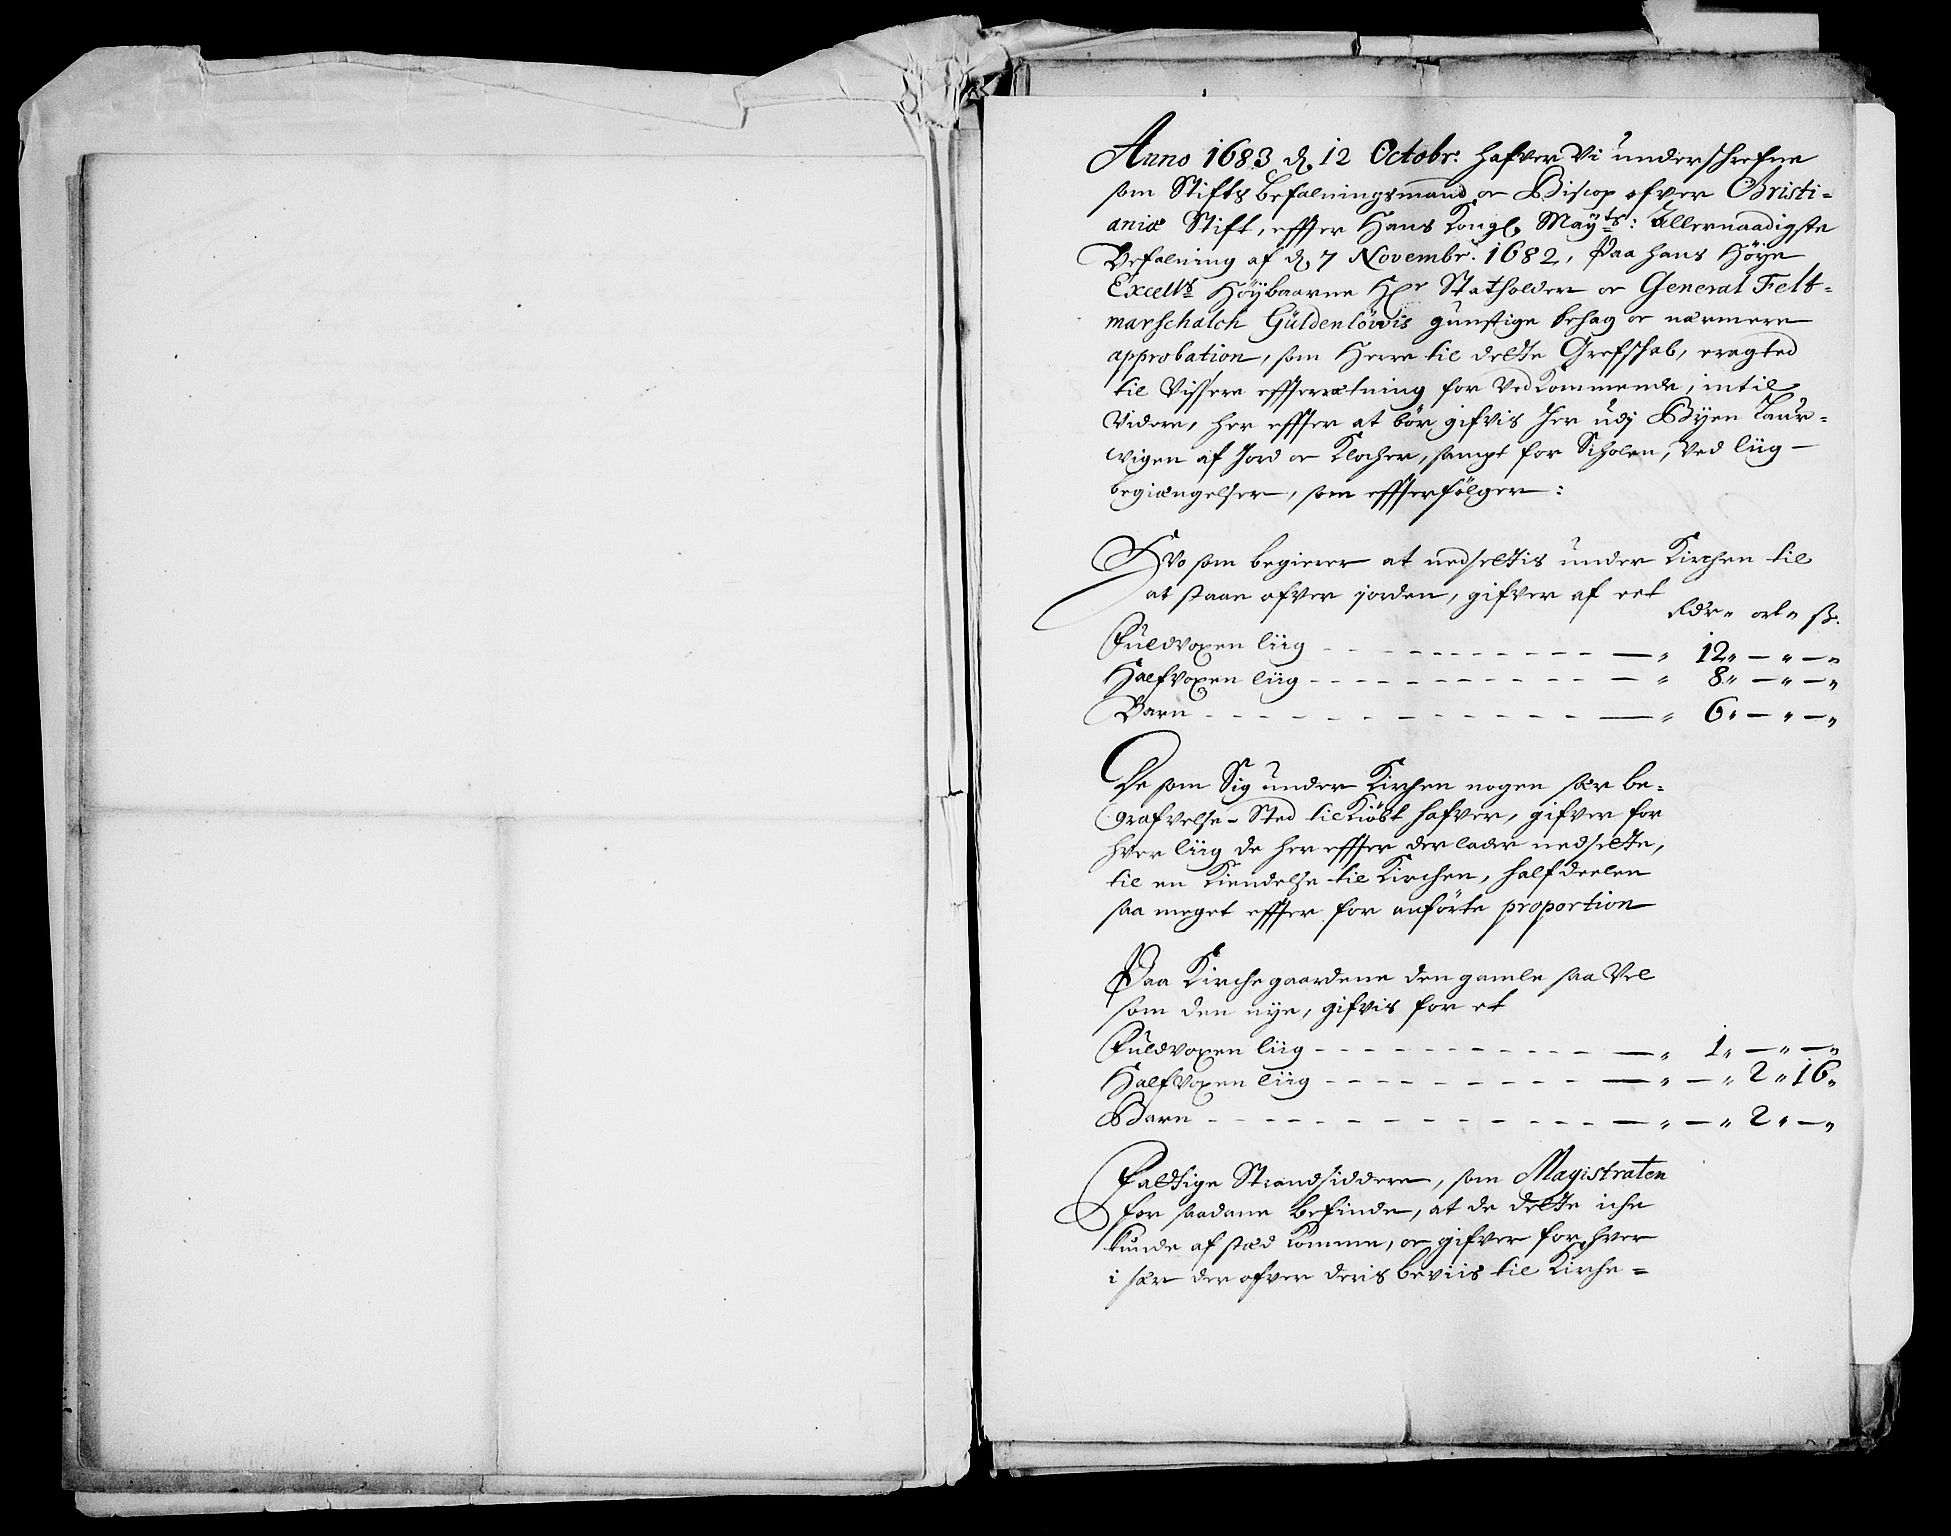 Anno 1683 d. 12 Octobr: hafver Vi underschrefne
som Stifts befalningsmand oc Biscop ofver Christi=
aniæ Stift, effter Hans Kongl. Mayts: Allernaadigste
Befalning af d. 7 Novembr: 1682, Paa hans Höye
Excells Höybaarne Hr Statholder oc General Felt=
marschalch Güldenlöwis gunstige behag oc nærmere
approbation, som Herre til dette Grefschab, eragted
til Vissere effterretning for Vedkommende, intil
Videre, her effter at bör gifvis her udj Byen Laur=
wigen af Jord oc Klocher, sampt for Scholen, Ved liig
begiængelser, som effterfölger:
Hvo som begierer at nedsettis under Kirchen til
at staae ofver jorden, gifver af eet
Rdr. ort. ß.
Fuldvoxen liig 12
Halfvoxen liig 8
Barn 6
De som Sig under Kirchen nogen sær be=
grafvelse-Sted tilkiöbt hafver, gifver for
hver liig de her effter der lader nedsette,
til en Kiendelse til Kirchen, half deelen
saa meget effter for anförte proportion
Paa Kirchegaardene den gamle saa Vel
som den nye, gifvis for et
Fuldvoxen liig 1
Halfvoxen liig 2 16
Barn 2
Fattige Strandsiddere, som Magistraten
for saadane befinder, at de dette iche
kunde af sted komme, oc gifver for hver
i sær der ofver deris beviis til Kirche=